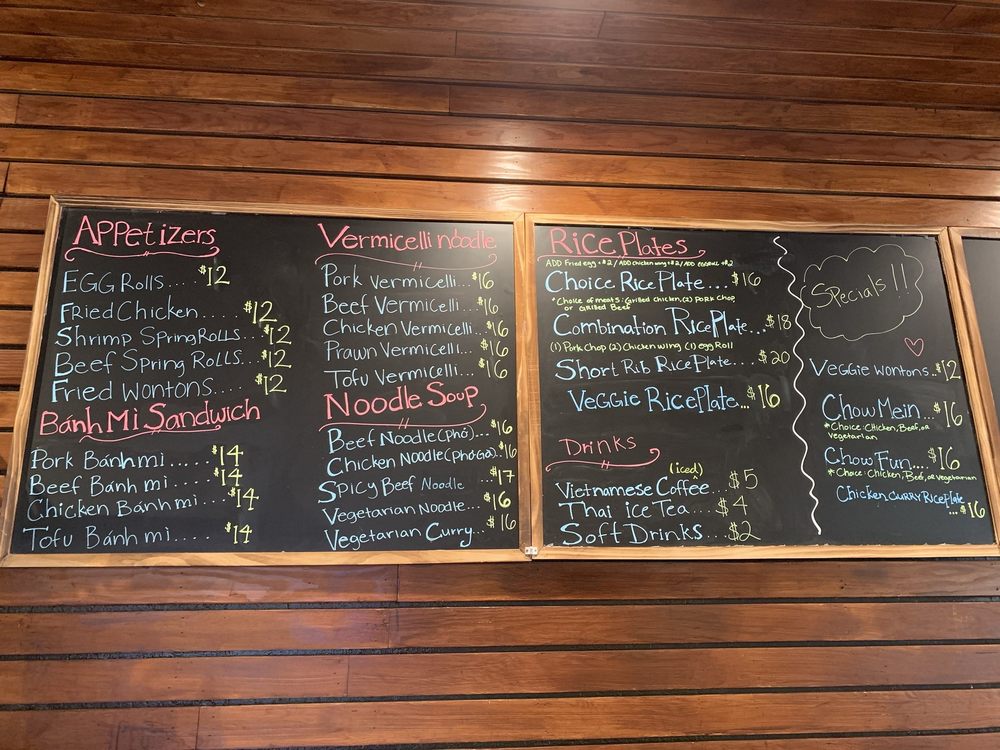 APPetizers
EGG Rolls.... $12
FRied Chicken.... $12
Shrimp Spring Rolls.. $12
Beef Spring Rolls... $12
Fried Wontons.... $12
Bánh Mì Sandwich
Pork Bánh mi..... $14
Beef Bánh mi.... $14
Chicken Bánh mi... $14
Tofu Bánh mi.... $14
Vermicelli noodle
Pork Vermicelli... $16
Beef Vermicelli... $16
Chicken Vermicelli.. $16
Prawn Vermicelli... $16
Tofu Vermicelli.... $16
Noodle Soup
Beef Noodle (phở)... $16
Chicken Noodle (phở Gà).. $16
Spicy Beef Noodle ... $17
Vegetarian Noodle... $16
Vegetarian Curry... $16
Rice Plates
ADD Fried egg +$2 / ADD chicken wing +$2 / ADD EGGROLL +$2
Choice Rice Plate... $16
*Choice of meats: Grilled Chicken, (2) Pork Chop
or Grilled Beef
Combination Rice Plate... $18
(1) Pork Chop (2) Chicken wing (1) egg Roll
Short Rib Rice Plate... $20
Veggie Rice Plate... $16
Drinks
(iced)
Vietnamese Coffee... $5
Thai ice Tea.... $4
Soft Drinks... $2
Specials!!
Veggie Wontons.. $12
Chow Mein... $16
*Choice: Chicken, Beef, or
Vegetarian
Chow Fun.... $16
*Choice: Chicken, Beef, or Vegetarian
Chicken CURRY Rice Plate
... $16